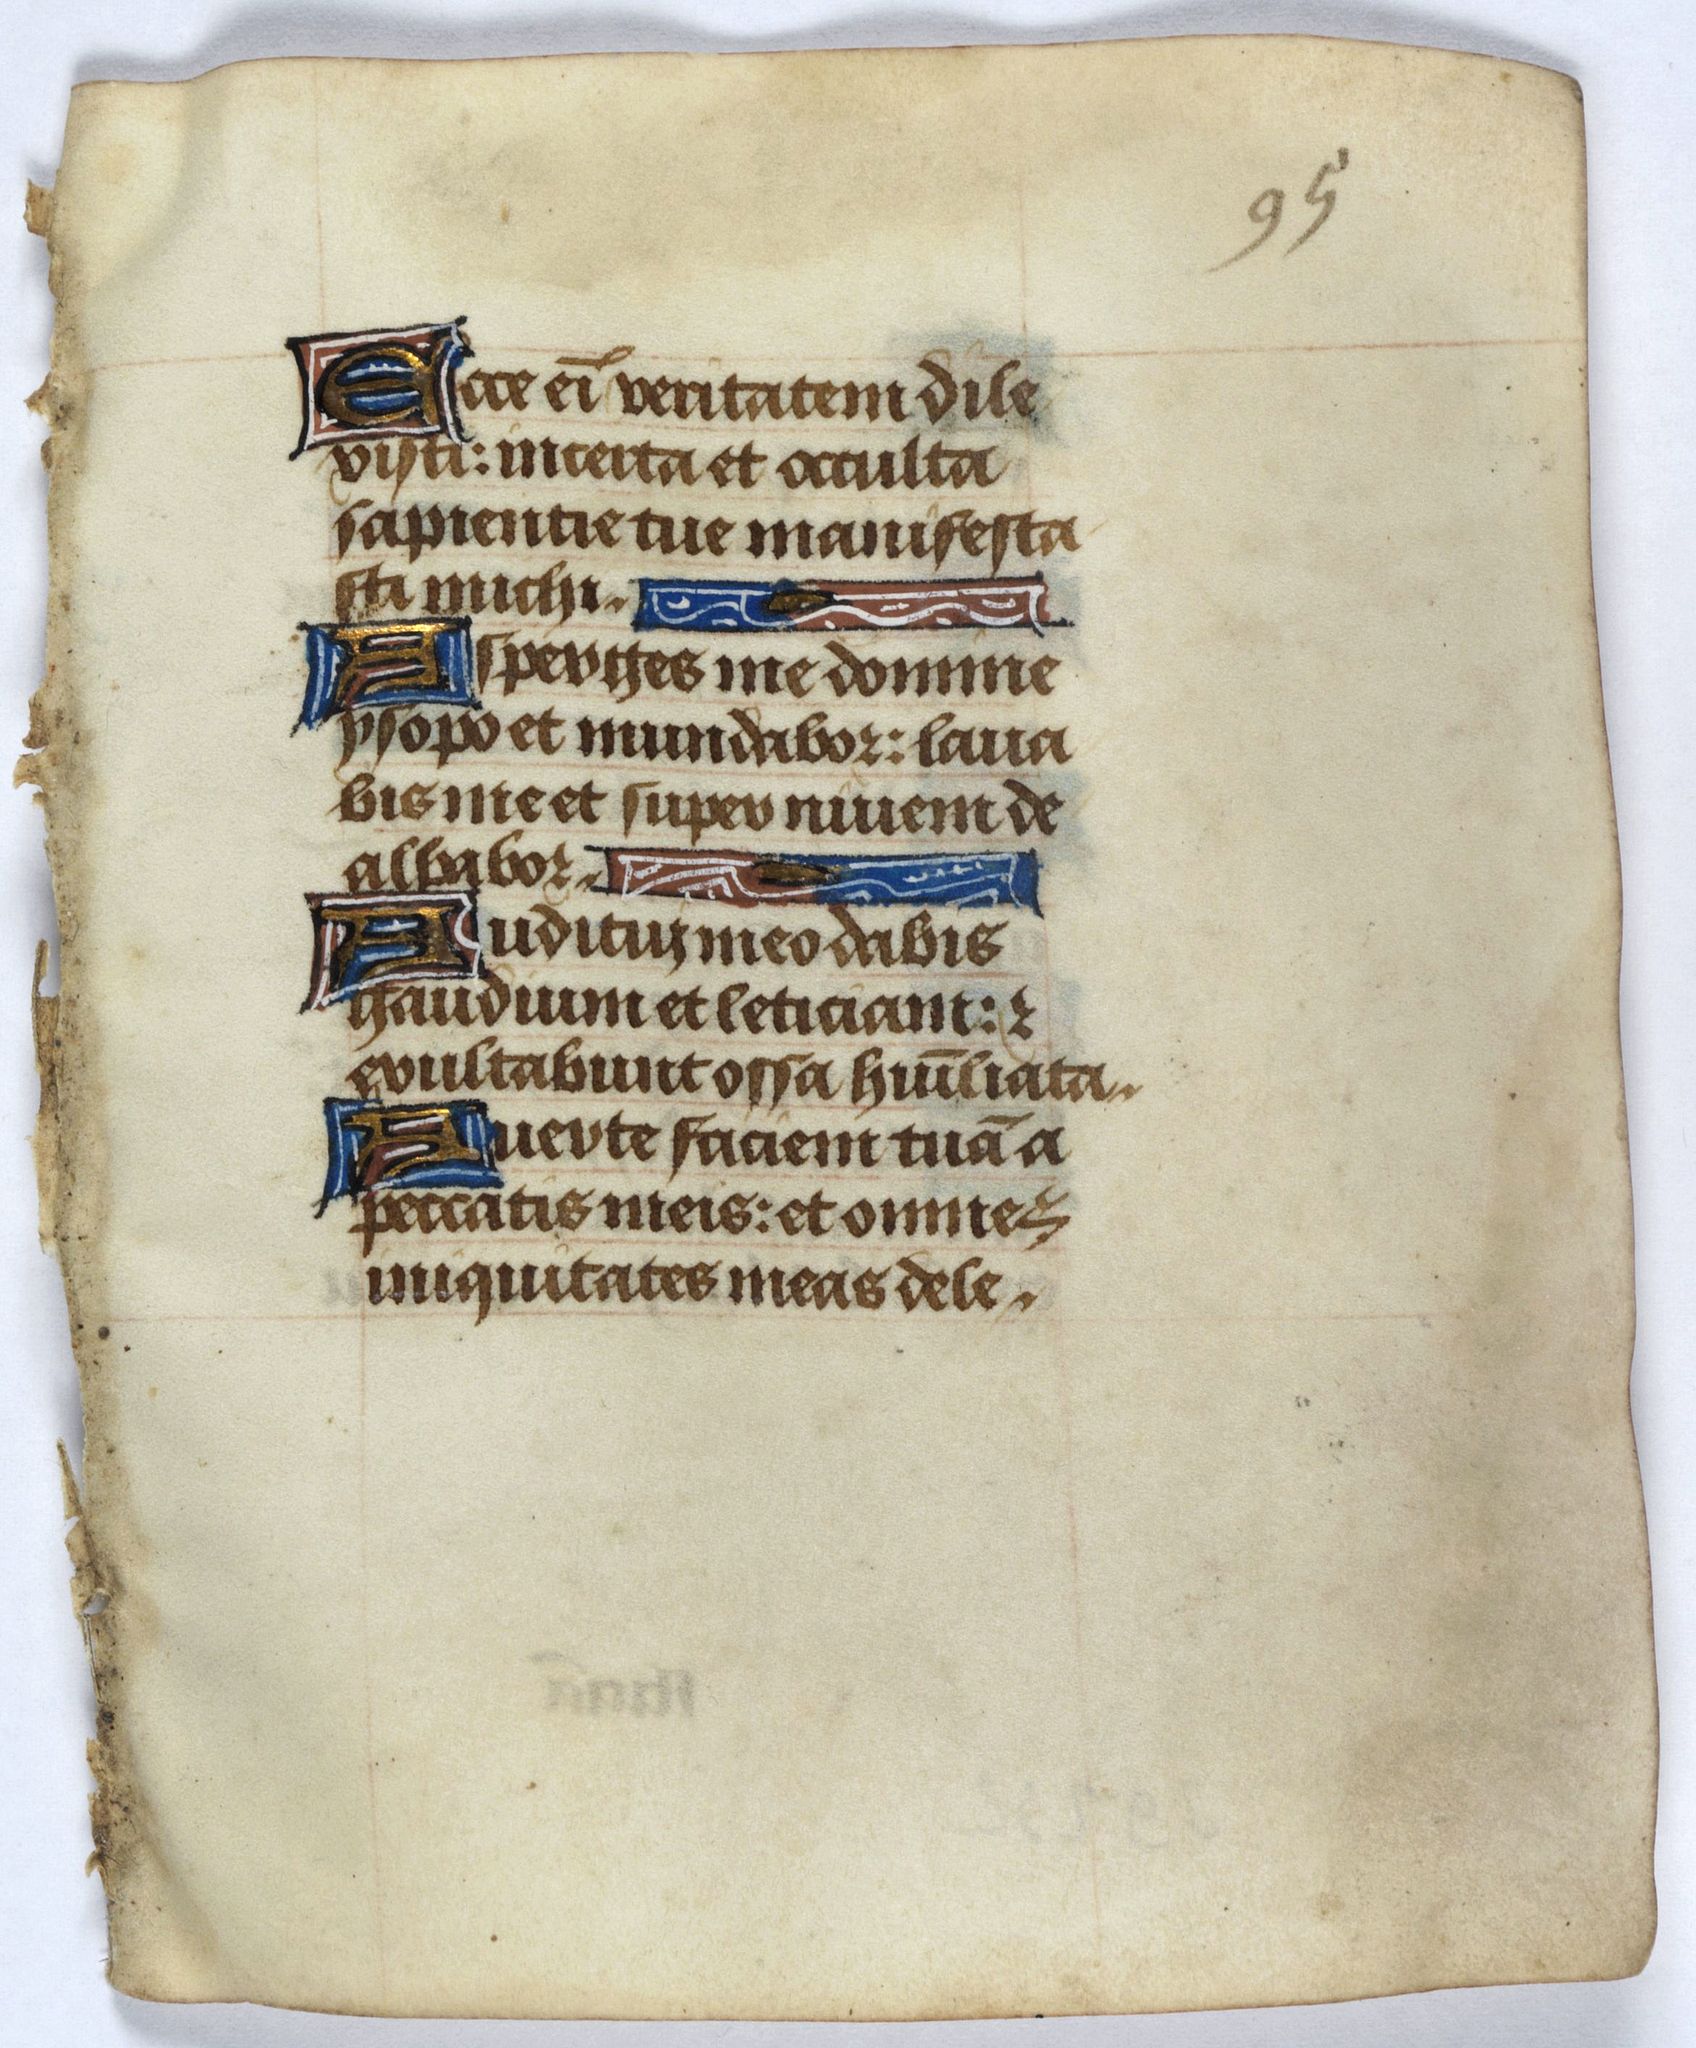 95
Ecce eī veritatem dile
xisti: incerta et occulta
sapientie tue manifesta
sti michi.
Asperges me domine
ysopo et mundabor: laua
bis me et super niuem de
albabor.
Auditui meo dabis
gaudium et leticiam: ⁊
exultabunt ossa hūiliata.
Auerte faciem tuā a
peccatis meis: et omnes
iniquitates meas dele.